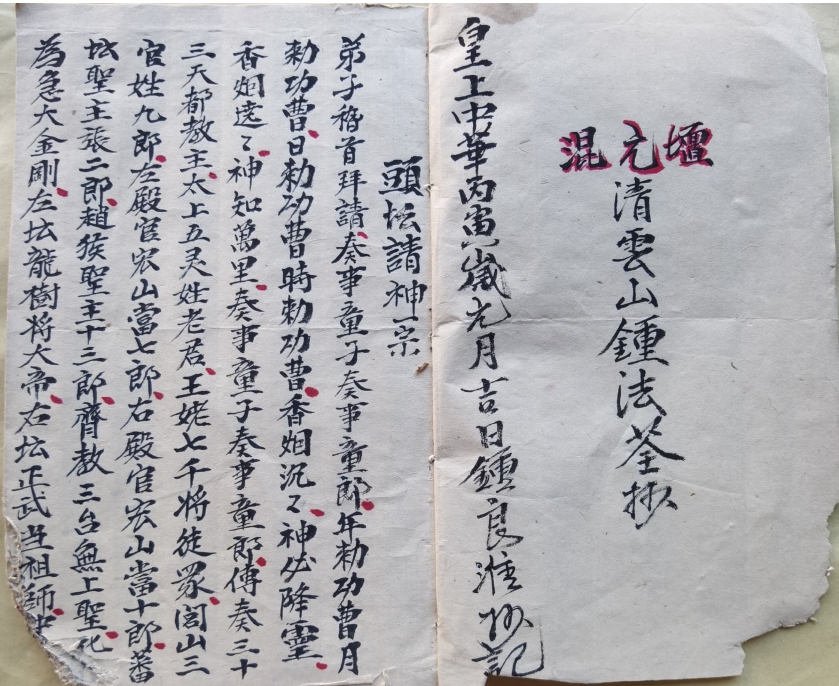 混元壇
清雲山鍾法荃抄
皇上中華丙寅歲元月吉日鍾良淮抄記
頭坛請神一宗
弟子稽首拜請奏事童子奏事童郎年勅功曹月
勅功曹日勅功曹時勅功曹香烟沉〻神必降靈
香烟遠〻神知萬里奏事童子奏事童郎傳奏三十
三天都教主太上五灵姓老君王姥七千将徒眾閭山三
官姓九郎左殿官宏山當七郎右殿官宏山當十郎蕃
坛聖主張二郎趙侯聖主十三郎齊教三台無上聖化
為急大金剛左坛龍樹将大帝右坛正武 祖師